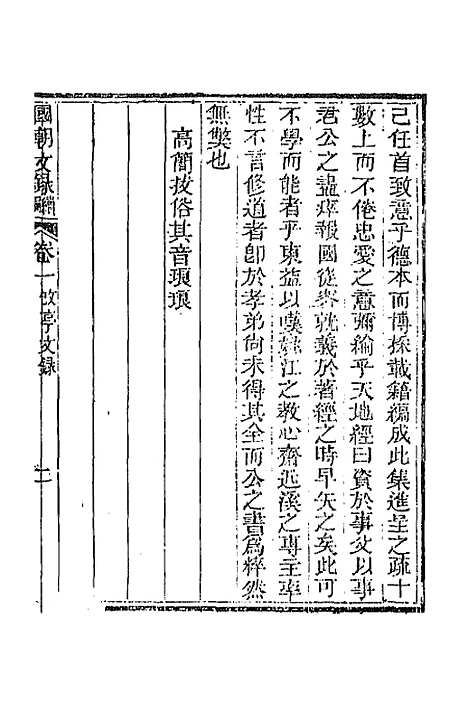 己任首致意乎德本而博採載籍編成此集進呈之疏十
數上而不倦忠愛之意彌綸乎天地經曰資於事父以事
君公之盡瘁報國從容就義於著經之時早矢之矣此可
不學而能者乎東益以嘆姚江之教心齋近溪之專主率
性不言修道者卽於孝弟尚未得其全而公之書爲粹然
無獘也
高簡拔俗其音琅琅
國朝文錄續編 卷一 改亭文錄 二